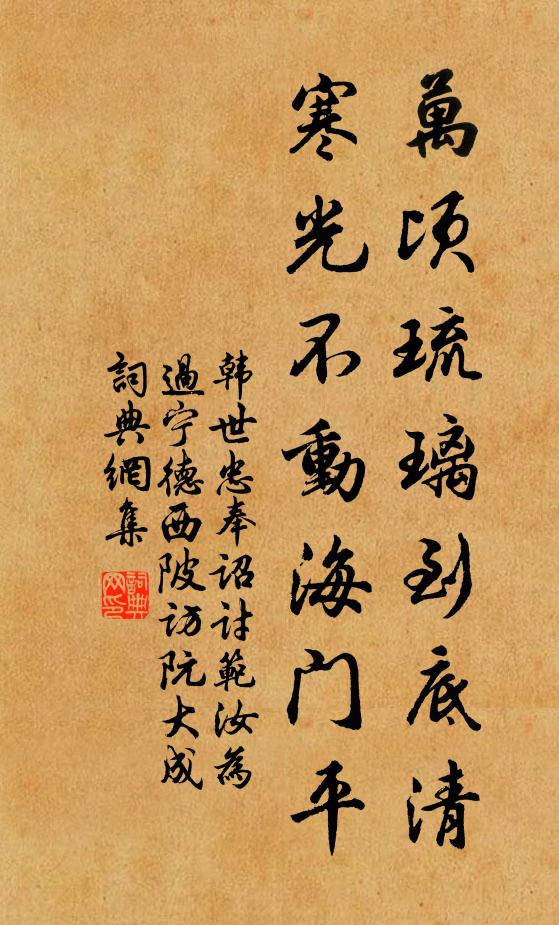 萬頃琉璃到底清
寒光不動海门平
韩世忠奉詔討範汝為
過宁德西陂访阮大成
詞典網集
詞典網印